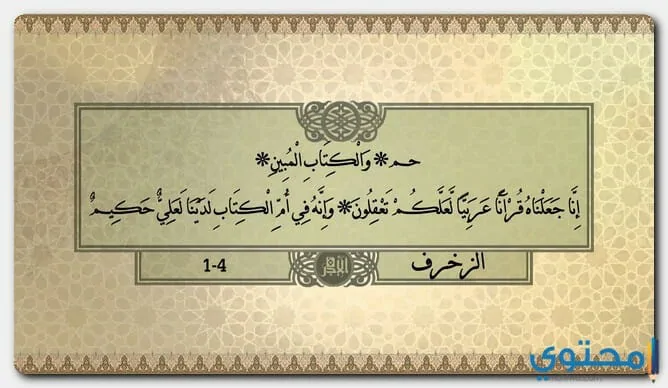 حم * وَالْكِتَابِ الْمُبِينِ *
إِنَّا جَعَلْنَاهُ قُرْآنًا عَرَبِيًّا لَّعَلَّكُمْ تَعْقِلُونَ * وَإِنَّهُ فِي أُمِّ الْكِتَابِ لَدَيْنَا لَعَلِيٌّ حَكِيمٌ
الزخرف
1-4
محتوي